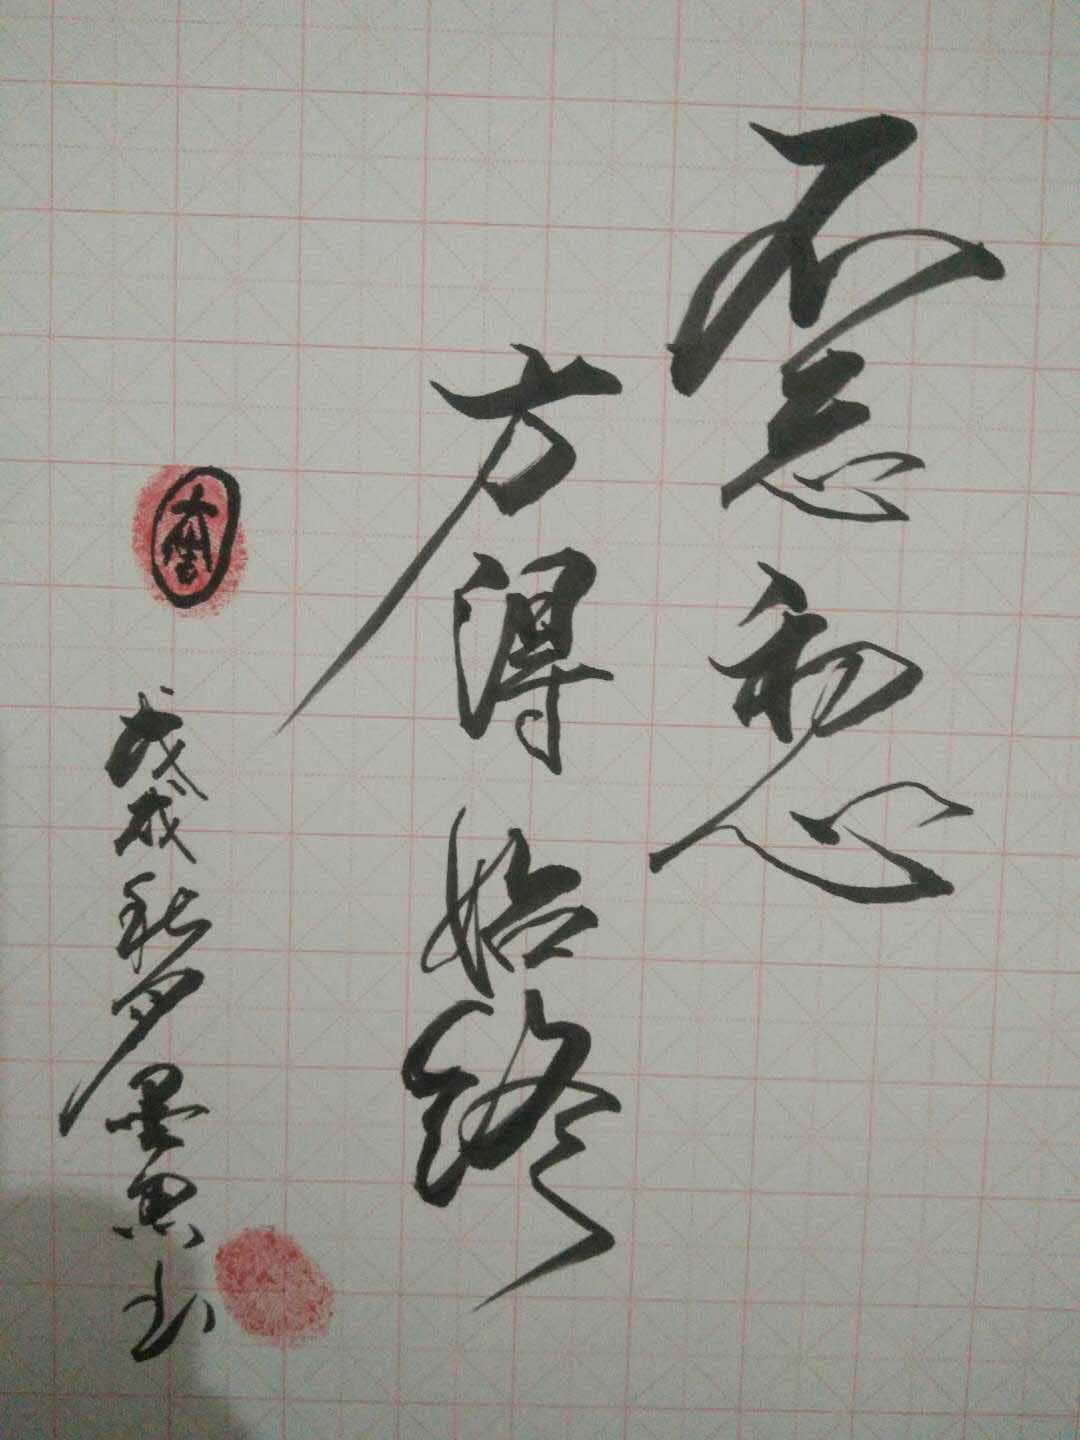 不忘初心
方得始终
戊戌秋月墨思书